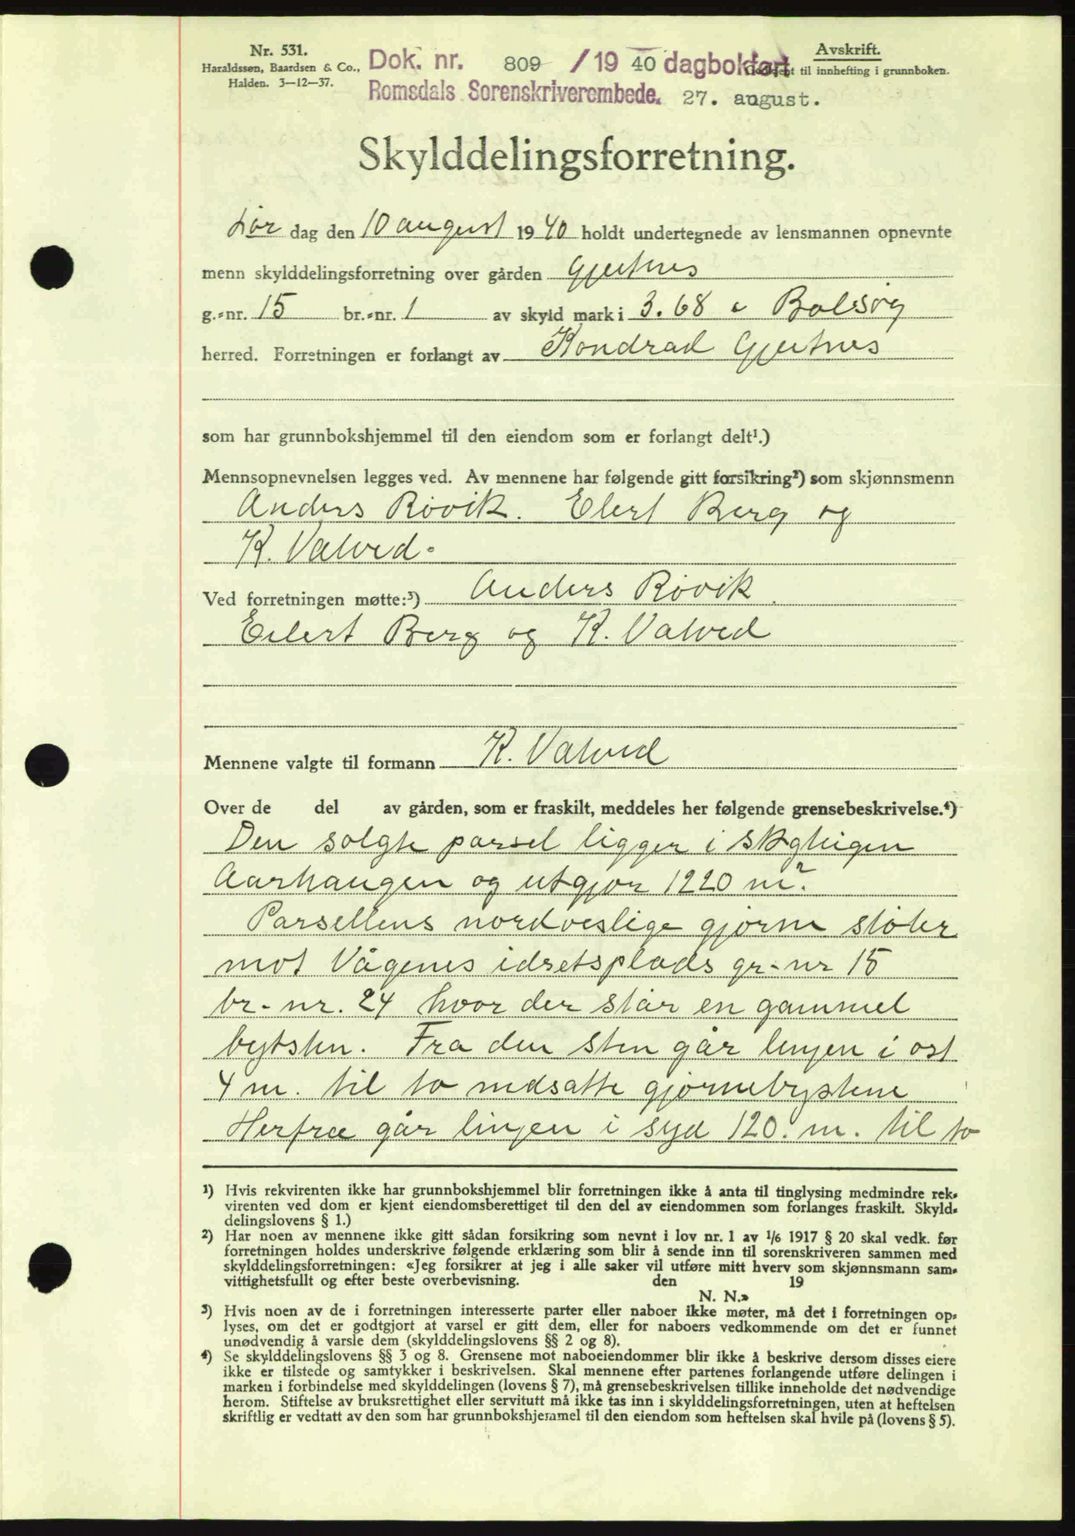 Nr. 531.
Haraldssen, Baardsen & Co.,
Halden. 3—12—37.
Dok. nr. 809 / 19 40 dagbokført
Romsdals Sorenskriverembede. 27. august.
Avskrift.
til innhefting i grunnboken.
Skylddelingsforretning.
Lør dag den 10 august 1940 holdt undertegnede av lensmannen opnevnte
menn skylddelingsforretning over gården Gjertnes
g.-nr. 15 br.-nr. 1 av skyld mark i 3.68 i Bolsøy
herred. Forretningen er forlangt av Kondrad Gjertnes
som har grunnbokshjemmel til den eiendom som er forlangt delt¹.)
Mennsopnevnelsen legges ved. Av mennene har følgende gitt forsikring²) som skjønnsmenn
Anders Røvik. Elert Berg og
K. Valved.
Ved forretningen møtte:³) Anders Røvik.
Eilert Berg og K. Valved
Mennene valgte til formann K. Valved
Over de del av gården, som er fraskilt, meddeles her følgende grensebeskrivelse.⁴)
Den solgte parsel ligger i
Aarhaugen og utgjør 1220 m².
Parsellens nordveslige gjørne støter
mot Vågenes idretsplads gr.-nr 15
br.-nr. 24 hvor der står en gammel
bytsten. Fra den sten går linjen i ost
4 m. til to nedsatte gjørnebystene
Herfra går linjen i syd 120. m. til to
¹) Hvis rekvirenten ikke har grunnbokshjemmel blir forretningen ikke å anta til tinglysing medmindre rek-
virenten ved dom er kjent eiendomsberettiget til den del av eiendommen som forlanges fraskilt. Skyld-
delingslovens § 1.)
²) Har noen av mennene ikke gitt sådan forsikring som nevnt i lov nr. 1 av 1/6 1917 § 20 skal vedk. før
forretningen holdes underskrive følgende erklæring som blir å sende inn til sorenskriveren sammen med
skylddelingsforretningen: «Jeg forsikrer at jeg i alle saker vil utføre mitt hverv som skjønnsmann sam-
vittighetsfullt og efter beste overbevisning. den 19
N. N.»
³) Hvis noen av de i forretningen interesserte parter eller naboer ikke møter, må det i forretningen op-
lyses, om det er godtgjort at varsel er gitt dem, eller for naboers vedkommende om det er funnet
unødvendig å varsle dem (skylddelingslovens §§ 2 og 8).
⁴) Se skylddelingslovens §§ 3 og 8. Grensene mot naboeiendommer blir ikke å beskrive dersom disses eiere
ikke er tilstede og samtykker i beskrivelsen. Skal mennene efter partenes forlangende utføre delingen i
marken i forbindelse med skylddelingen (lovens § 7), må grensebeskrivelsen tillike inneholde det nødvendige
herom. Stiftelse av bruksrettighet eller servitutt må ikke tas inn i skylddelingsforretningen, uten at heftelsen
skriftlig er vedtatt av den som har grunnbokshjemmel til den eiendom som heftelsen skal hvile på (lovens § 5).